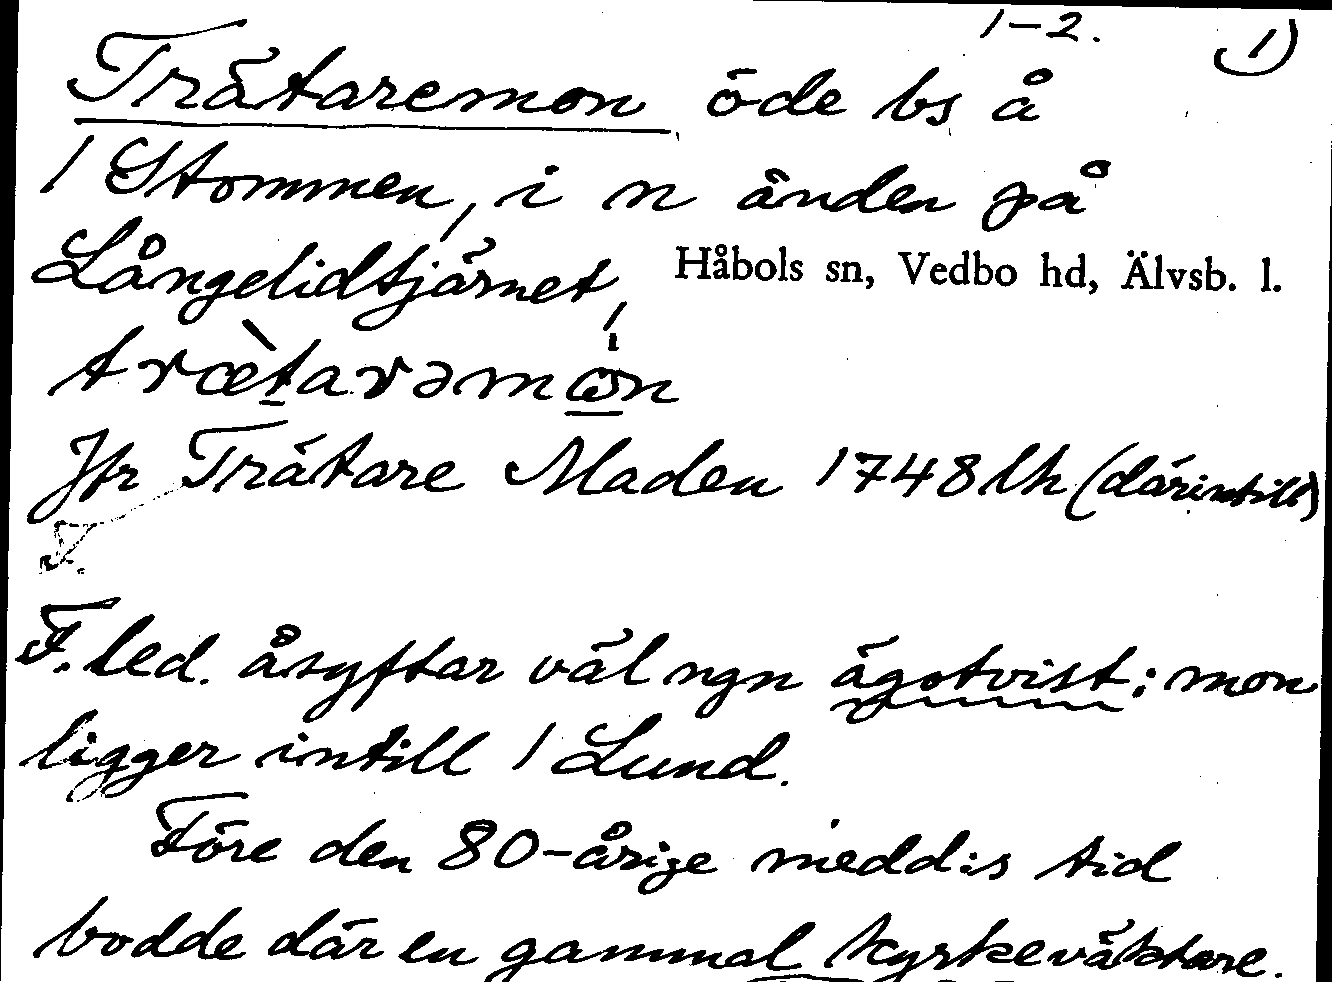 1-2. 1)
Trätaremon öde bs å
1 Stommen, i n änden på
Långelidtjärnet,
Håbols sn, Vedbo hd, Älvsb. l.
Jfr Trätare Maden 1748 lh (därintill)
F. led. åsyftar väl ngn ägotvist; mon
ligger intill 1 Lund.
Före den 80-årige medd:s tid
bodde där en gammal kyrkeväktare.